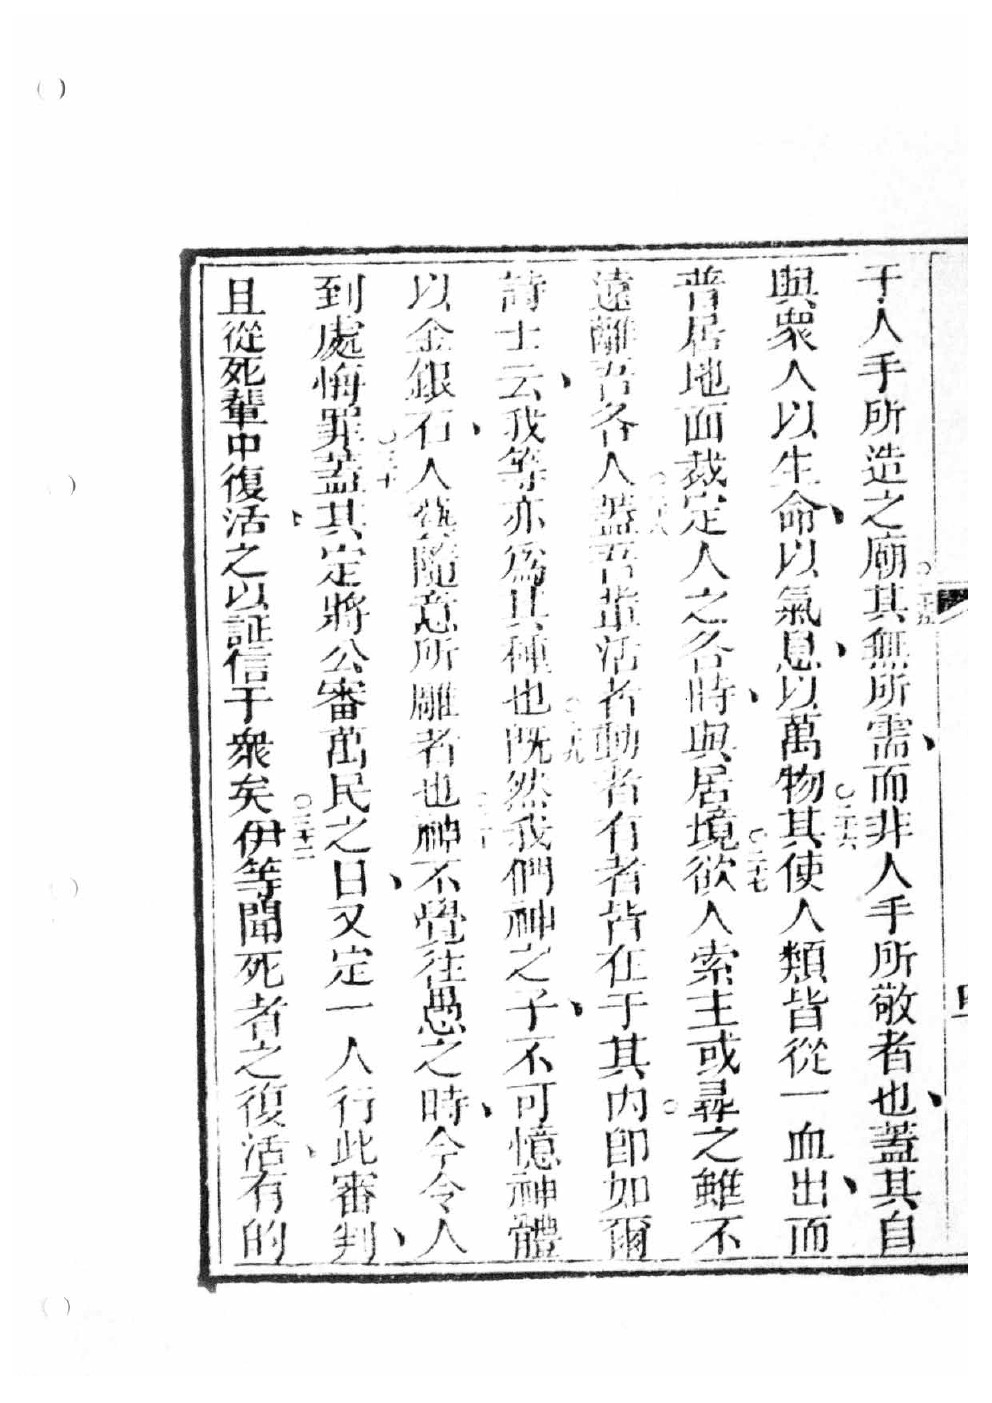 于人手所造之廟其無所需而非人手所敬者也蓋其自
與眾人以生命以氣息以萬物其使人類皆從一血出而
普居地面裁定人之各時與居境欲人索主或尋之雖不
遠離吾各人蓋吾輩活者動者有者皆在于其內即如爾
詩士云我等亦為其種也既然我們神之子不可憶神體
以金銀石人藝隨意所雕者也神不覺往愚之時今令人
到處悔罪蓋其定將公審萬民之日又定一人行此審判
且從死輩中復活之以証信于眾矣伊等聞死者之復活有的